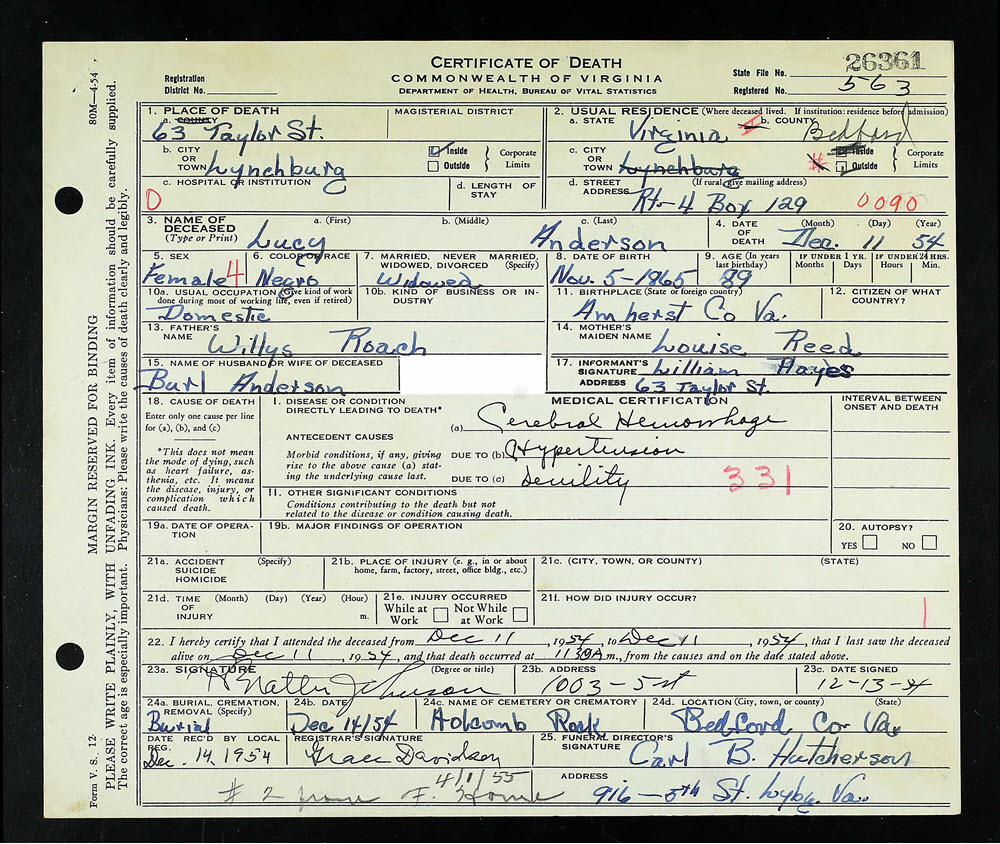 CERTIFICATE OF DEATH
COMMONWEALTH OF VIRGINIA
DEPARTMENT OF HEALTH, BUREAU OF VITAL STATISTICS
Registration
District No.
State File No. 26361
Registered No. 563
1. PLACE OF DEATH
a. COUNTY
63 Taylor St.
MAGISTERIAL DISTRICT
2. USUAL RESIDENCE (Where deceased lived. If institution: residence before admission)
a. STATE Virginia
b. COUNTY Bedford
b. CITY OR TOWN Lynchburg
Inside
Outside
Corporate Limits
c. CITY OR TOWN Lynchburg
Inside
Outside
Corporate Limits
c. HOSPITAL OR INSTITUTION
0
d. LENGTH OF STAY
d. STREET ADDRESS (If rural, give mailing address)
Rt-4 Box 129 0090
3. NAME OF DECEASED (Type or Print)
a. (First) b. (Middle) c. (Last)
Lucy Anderson
4. DATE OF DEATH (Month) (Day) (Year)
Dec. 11 54
5. SEX
Female 4
6. COLOR OR RACE
Negro
7. MARRIED, NEVER MARRIED, WIDOWED, DIVORCED (Specify)
Widowed
8. DATE OF BIRTH
Nov. 5-1865
9. AGE (In years last birthday)
89
IF UNDER 1 YR. Months Days
IF UNDER 24 HRS. Hours Min.
10a. USUAL OCCUPATION (Give kind of work done during most of working life, even if retired)
Domestic
10b. KIND OF BUSINESS OR INDUSTRY
11. BIRTHPLACE (State or foreign country)
Amherst Co Va.
12. CITIZEN OF WHAT COUNTRY?
13. FATHER'S NAME
Willys Roach
14. MOTHER'S MAIDEN NAME
Louise Reed
15. NAME OF HUSBAND OR WIFE OF DECEASED
Burl Anderson
17. INFORMANT'S SIGNATURE William Hayes
ADDRESS 63 Taylor St.
18. CAUSE OF DEATH
Enter only one cause per line for (a), (b), and (c)
*This does not mean the mode of dying, such as heart failure, asthenia, etc. It means the disease, injury, or complication which caused death.
MEDICAL CERTIFICATION
INTERVAL BETWEEN ONSET AND DEATH
I. DISEASE OR CONDITION DIRECTLY LEADING TO DEATH*
(a) Cerebral Hemorrhage
ANTECEDENT CAUSES
Morbid conditions, if any, giving rise to the above cause (a) stating the underlying cause last.
DUE TO (b) Hypertension
DUE TO (c) Senility
331
II. OTHER SIGNIFICANT CONDITIONS
Conditions contributing to the death but not related to the disease or condition causing death.
19a. DATE OF OPERATION
19b. MAJOR FINDINGS OF OPERATION
20. AUTOPSY?
YES NO
21a. ACCIDENT SUICIDE HOMICIDE (Specify)
21b. PLACE OF INJURY (e. g., in or about home, farm, factory, street, office bldg., etc.)
21c. (CITY, TOWN, OR COUNTY) (STATE)
21d. TIME OF INJURY (Month) (Day) (Year) (Hour) m.
21e. INJURY OCCURRED
While at Work Not While at Work
21f. HOW DID INJURY OCCUR?
22. I hereby certify that I attended the deceased from Dec 11, 1954, to Dec 11, 1954, that I last saw the deceased
alive on Dec 11, 1954, and that death occurred at 1130A m., from the causes and on the date stated above.
23a. SIGNATURE (Degree or title)
Johnson
23b. ADDRESS
1003-5 st
23c. DATE SIGNED
12-13-54
24a. BURIAL, CREMATION, REMOVAL (Specify)
Burial
24b. DATE
Dec 14/54
24c. NAME OF CEMETERY OR CREMATORY
Holcomb Rock
24d. LOCATION (City, town, or county) (State)
Bedford Co Va.
DATE REC'D BY LOCAL REG.
Dec. 14, 1954
REGISTRAR'S SIGNATURE
Grace Davidson
25. FUNERAL DIRECTOR'S SIGNATURE
Carl B. Hutcherson
4/1/55
# 2 F. Home
ADDRESS
916-5th St. Lybg. Va.
Form V. S. 12
80M—4-54
MARGIN RESERVED FOR BINDING
PLEASE WRITE PLAINLY, WITH UNFADING INK. Every item of information should be carefully supplied.
The correct age is especially important. Physicians: Please write the causes of death clearly and legibly.